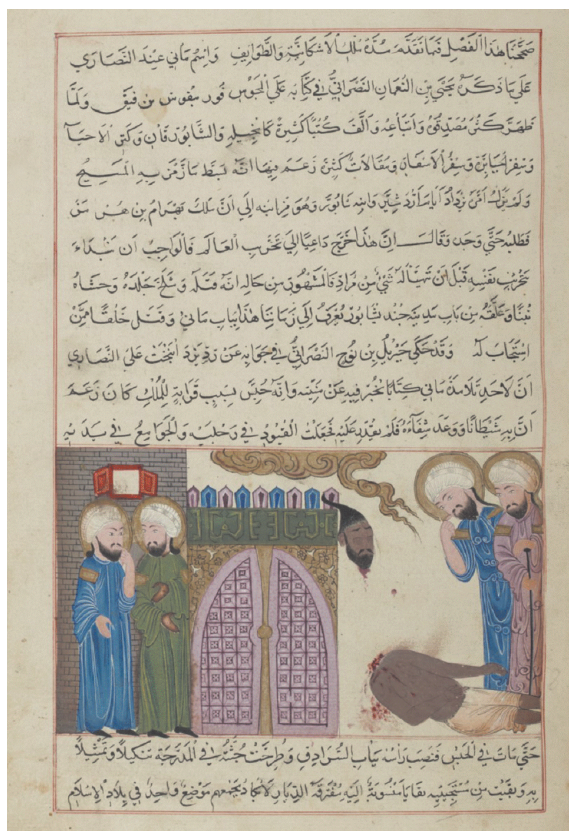 صححنا هذا الفصل فيما تقدم مدة ملك الاشكانية والطوايف واسم ماني عند النصارى
على ما ذكره يحيى بن النعمان النصراني في كتابه على المجوس قوربيقوس بن فتق ولما
ظهر كثر مصدقوه واتباعه والف كتبا كثيرة كانجيله والشابورقان وكنز الاحيا
وسفر الجبابرة وسفر الاسفار ومقالات كثيرة زعم فيها انه بسط ما رمز به المسيح
ولم يزل امره يزداد ايام اردشير وابنه سابور وهرمز ابنه الى ان ملك بهرام بن هرمز
فطلبه حتى وجد وقال ان هذا خرج داعيا الى تخريب العالم فالواجب ان نبداء
بتخريب نفسه قبل ان يتهيا له شي من مراده فالمشهور من حاله انه قتله وسلخ جلده وحشاه
تبنا وعلقه من باب مدينة جندشابور يعرف الى زماننا هذا بباب ماني وقتل خلقا ممن
استجاب له وقد حكى جبريل بن نوح النصراني في جوابه عن رد يزدانبخت على النصارى
ان لاحد تلامذة ماني كتابا يخبر فيه عن وانه حبس بسبب قرابة للملك كان زعم
ان به شيطانا ووعد شفاءه فلم يقدر عليه فجعلت القيود في رجليه والجوامع في يديه
حتى مات في الحبس فنصب راسه بباب السرادق وطرحت جثته في المدرجة تنكيلا وتمثيلا
به وبقيت من مستجيبيه بقايا منسوبة اليه متفرقة الديار لا يكاد يجمعهم موضع واحد في بلاد الاسلام